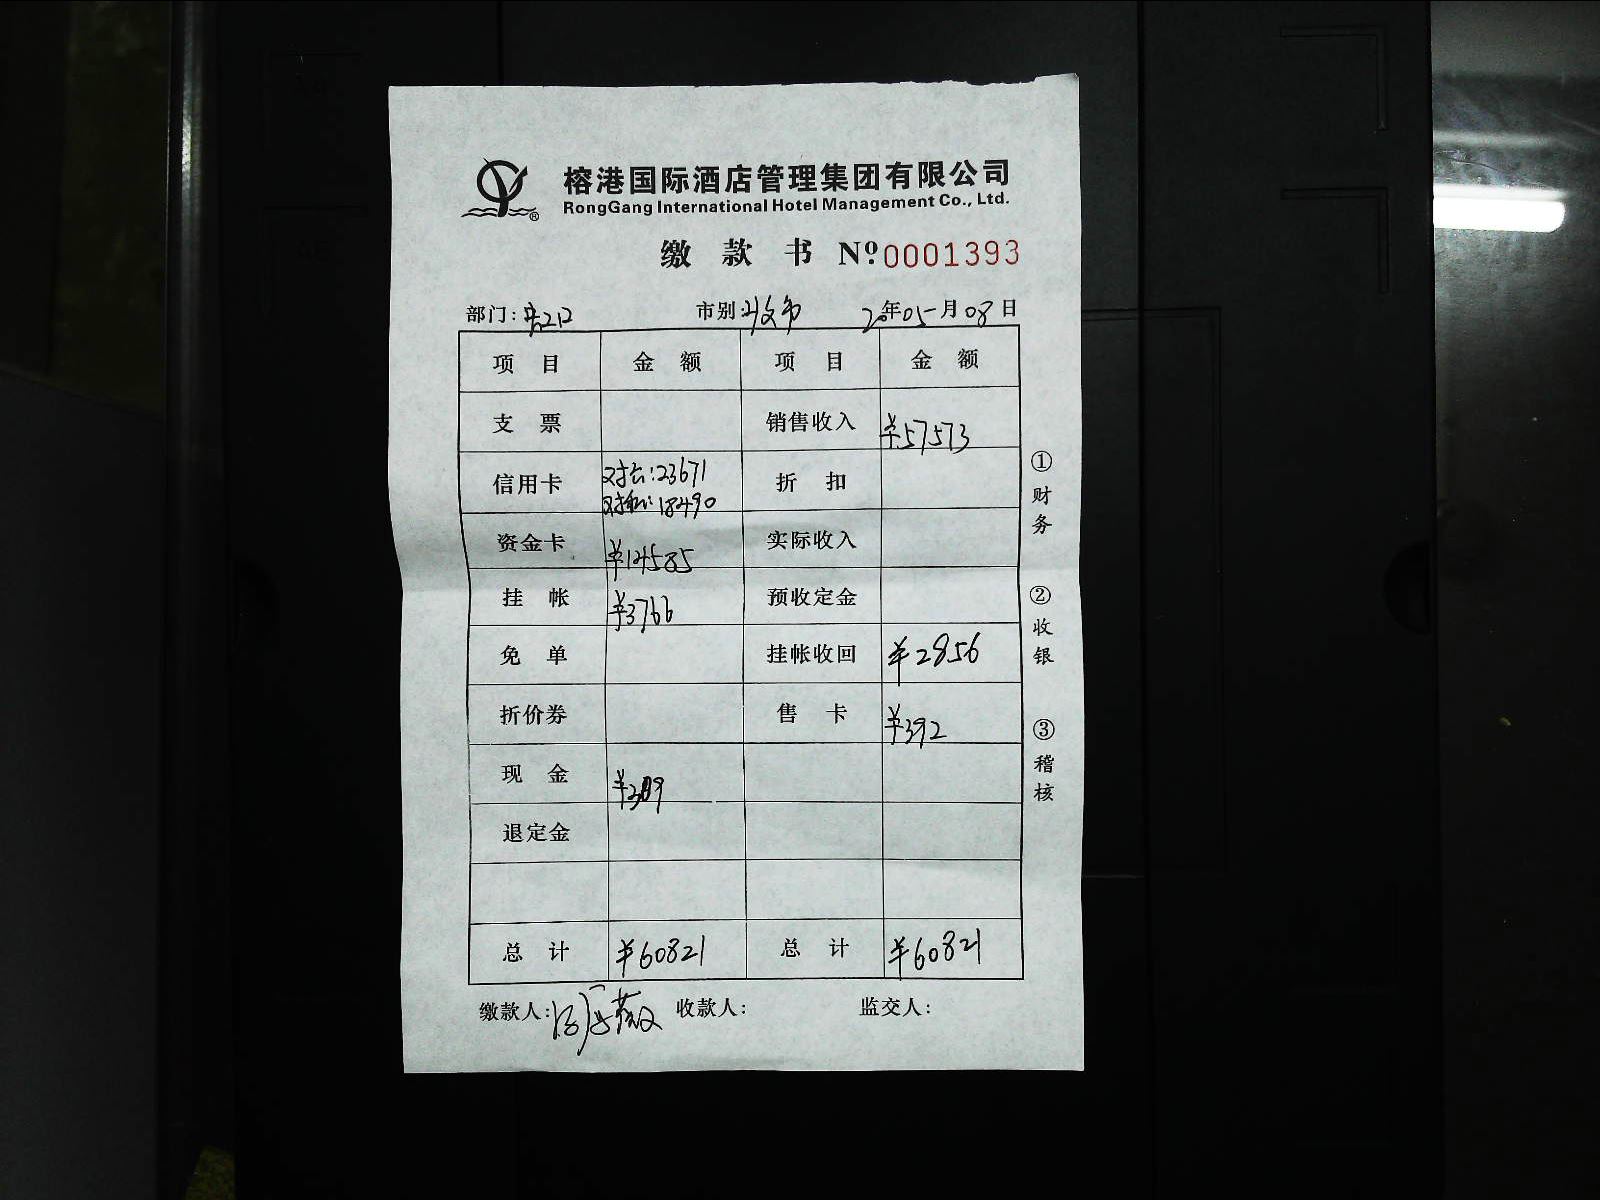 榕港国际酒店管理集团有限公司
RongGang International Hotel Management Co., Ltd.
®
缴款书 Nº 0001393
部门: 市别: 20年05月08日
项目 金额 项目 金额
支票 销售收入 ¥57573
信用卡 对公:23671 折扣
对私:18490
资金卡 ¥14585 实际收入
挂帐 ¥3766 预收定金
免单 挂帐收回 ¥2856
折价券 售卡 ¥392
现金 ¥309
退定金
总计 ¥60821 总计 ¥60821
缴款人: 收款人: 监交人:
①财务
②收银
③稽核